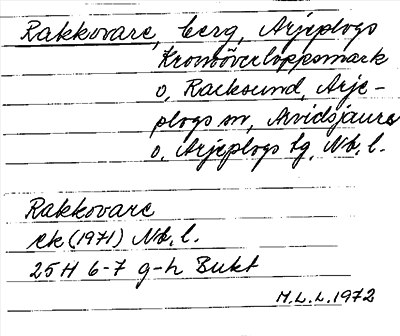 Rakkovare, berg, Arjeplogs
Kronoöverloppsmark
o, Racksund, Arje-
plogs sn, Arvidsjaurs
o, Arjeplogs tg, Nb, l.
Rakkovare
ek (1971) Nb, l.
25H 6-7 g-h Bukt
M.L.L. 1972